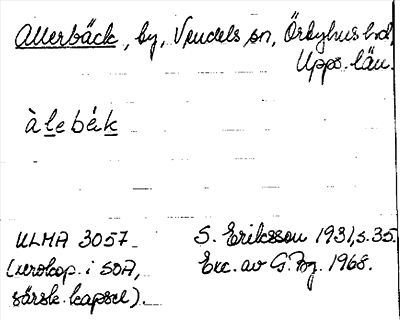 Allerbäck, by, Vendels sn, Örbyhus hd,
Upps. län.
àlebék
ULMA 3057
(xerokop. i SOA,
särsk. kapsel).
S. Eriksson 1931, s. 35.
Exc. av G. Bg. 1968.